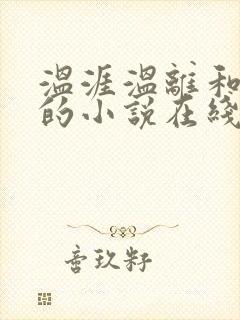 温涯温離和
的小説在綫
言玖籽